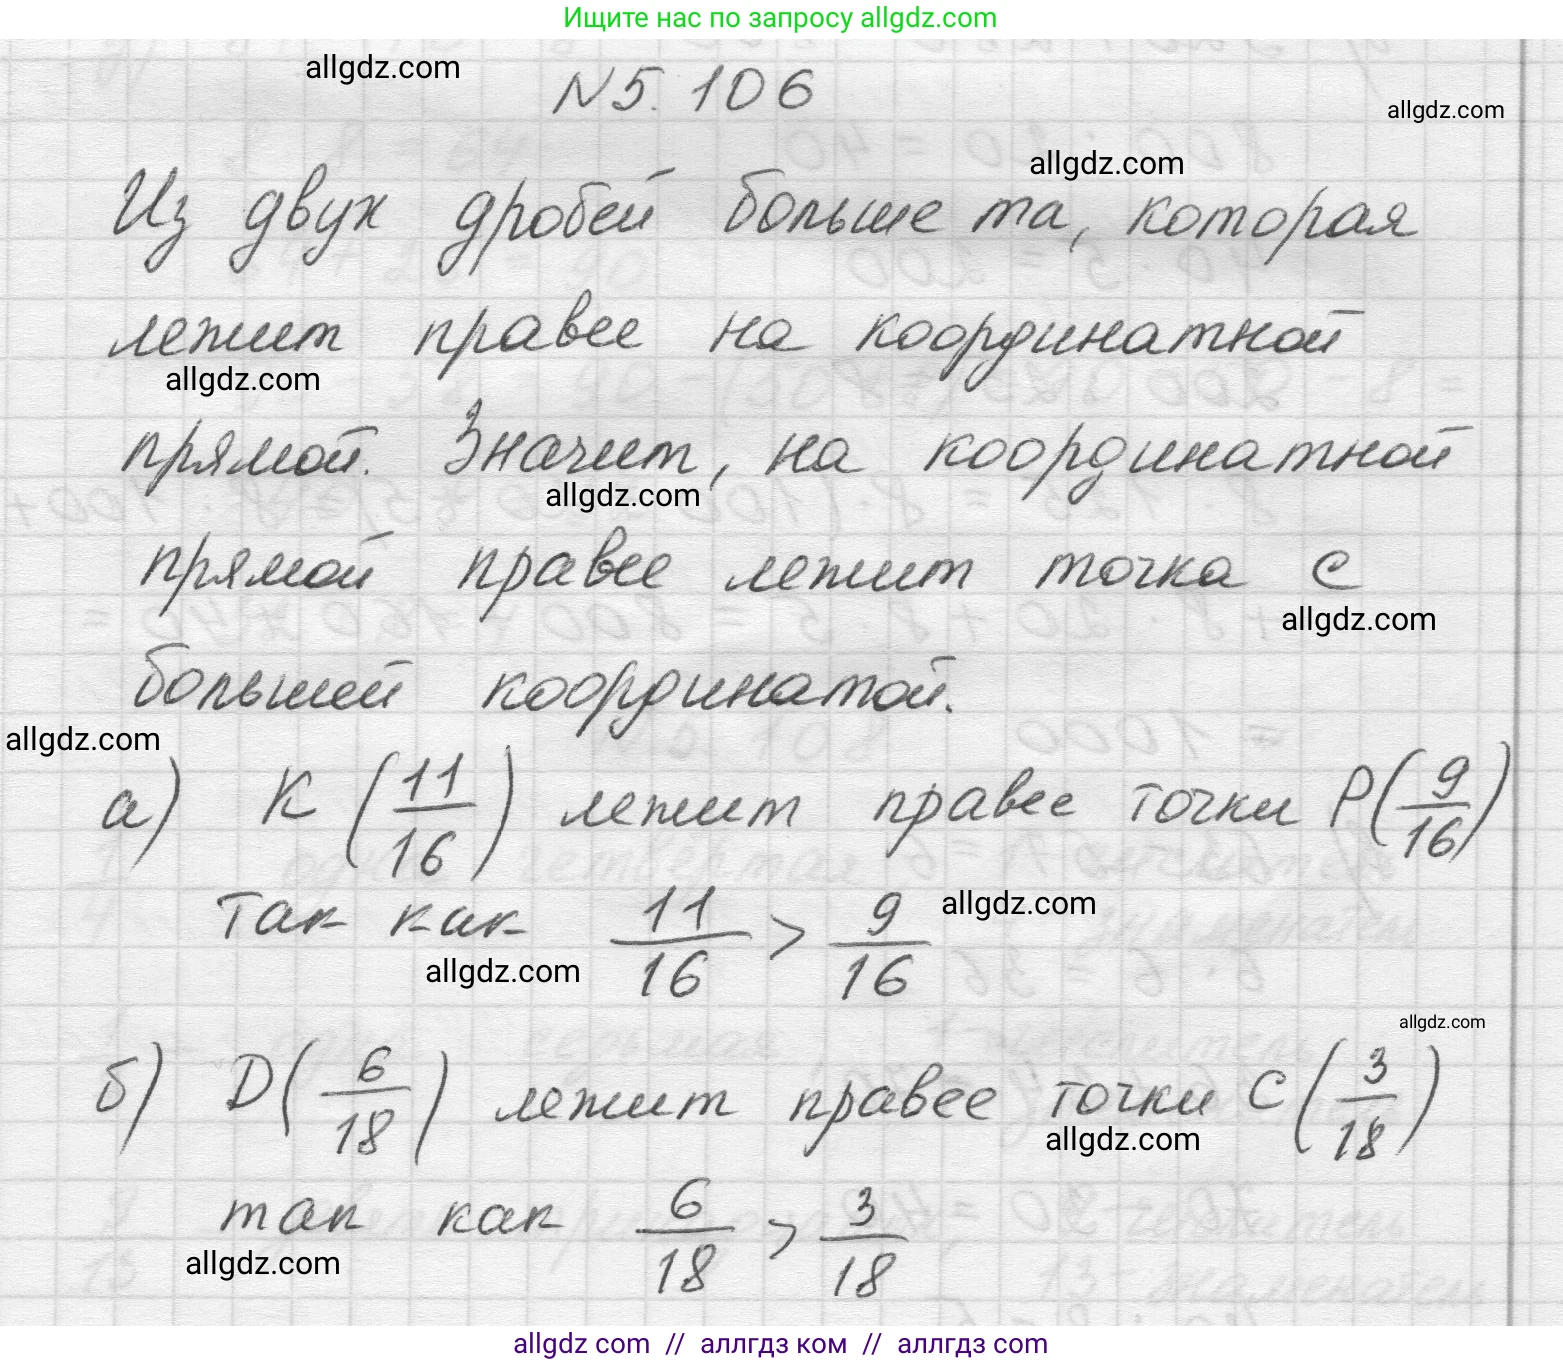 Ищите нас по запросу allgdz.com
allgdz.com
№5.106
allgdz.com
allgdz.com
Из двух дробей больше та, которая
лежит правее на координатной
allgdz.com
прямой. Значит, на координатной
allgdz.com
прямой правее лежит точка с
allgdz.com
большей координатой.
allgdz.com
а) K (11/16) лежит правее точки P(9/16)
так как 11/16 > 9/16
allgdz.com
allgdz.com
allgdz.com
б) D(6/18) лежит правее точки C(3/18)
allgdz.com
так как 6/18 > 3/18
allgdz.com
allgdz.com // аллгдз ком // аллгдз.com